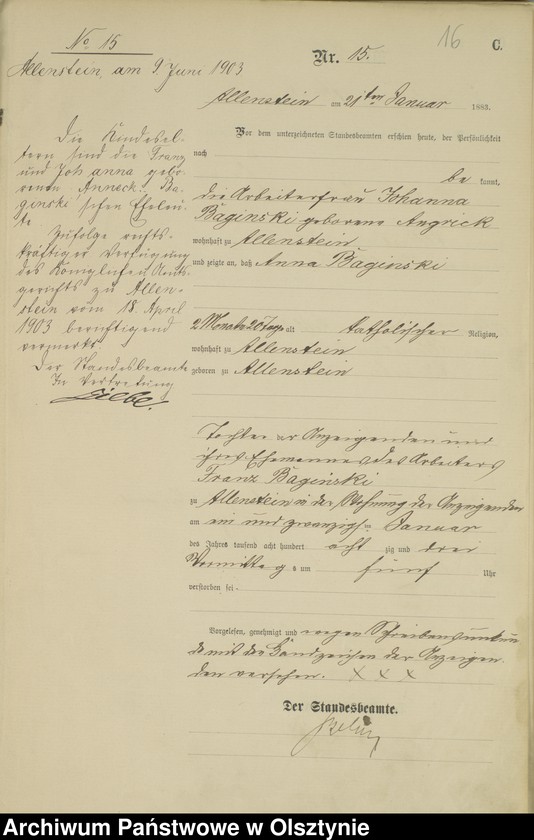 16
C.
No 15
Nr. 15.
Allenstein, am 9. Juni 1903
Allenstein am 21ten Januar 1883.
Die Kindesel-
tern sind die Franz
und Johanna gebo-
renen Anneck, Ba-
ginski'schen Eheleu-
te
Zufolge rechts-
kräftiger Verfügung
des Königlichen Amts-
gerichts zu Allen-
stein vom 18. April
1903 berichtigend
vermerkt.
Der Standesbeamte
In Vertretung
Vor dem unterzeichneten Standesbeamten erschien heute, der Persönlichkeit
nach
be kannt,
die Arbeiterfrau Johanna
Baginski geborene Angrick
wohnhaft zu Allenstein
und zeigte an, daß Anna Baginski
2 Monate 20 Tage alt katholischer Religion,
wohnhaft zu Allenstein
geboren zu Allenstein
Tochter der Anzeigenden und
ihres Ehemannes des Arbeiters
Franz Baginski
zu Allenstein in der Wohnung der Anzeigenden
am ein und zwanzigsten Januar
des Jahres tausend acht hundert acht zig und drei
Vormittags um fünf Uhr
verstorben sei.
Vorgelesen, genehmigt und wegen Schreibensunkun
de mit den Handzeichen der Anzeigen
den versehen. X X X
Der Standesbeamte.
Archiwum Państwowe w Olsztynie